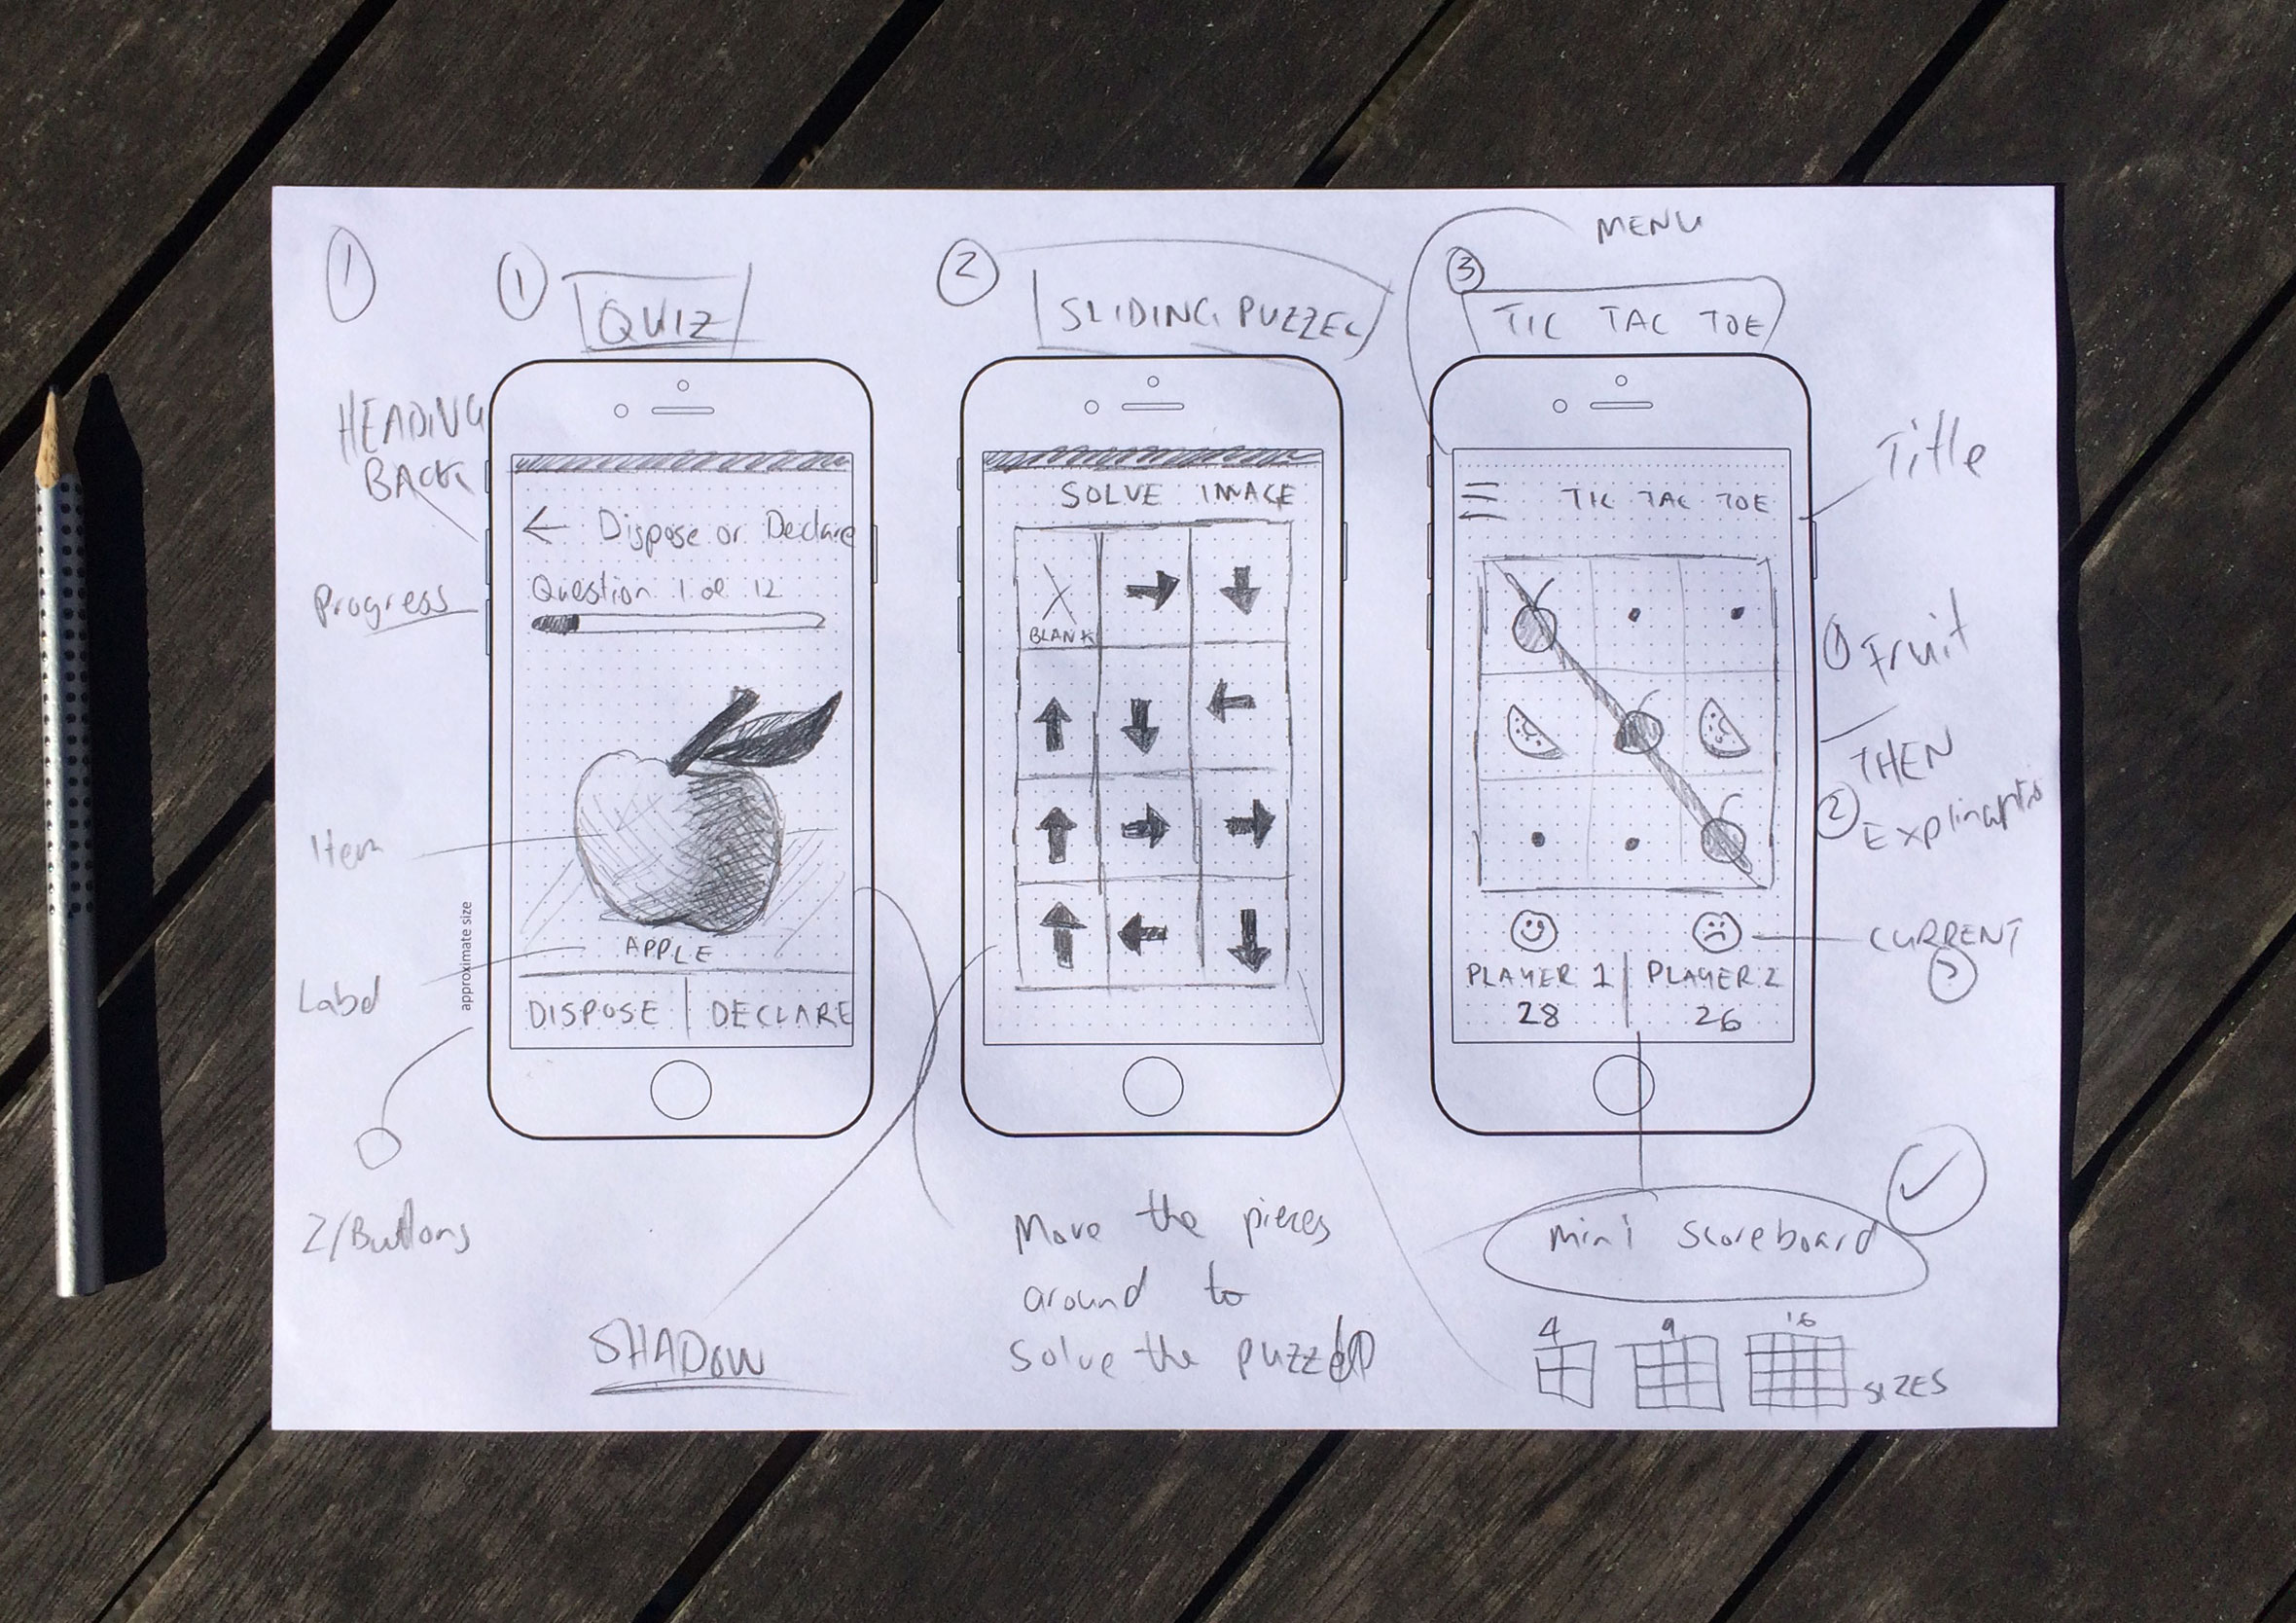 MENU
1
1
QUIZ
2
SLIDING PUZZEL
3
TIC TAC TOE
HEADING
BACK
Progress
Item
Label
approximate size
2/Buttons
← Dispose or Declare
Question 1 of 12
APPLE
DISPOSE
DECLARE
SHADOW
SOLVE IMAGE
X
BLANK
Move the pieces
around to
solve the
TIC TAC TOE
PLAYER 1
PLAYER 2
28
26
Title
1 Fruit
THEN
2
CURRENT
?
mini scoreboard
4
9
16
SIZES